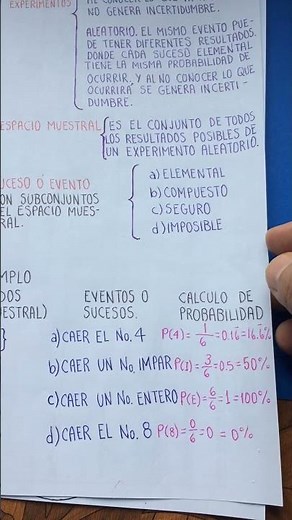 EXPERIMENTOS
NO GENERA INCERTIDUMBRE.
ALEATORIO. EL MISMO EVENTO PUE-
DE TENER DIFERENTES RESULTADOS.
DONDE CADA SUCESO ELEMENTAL
TIENE LA MISMA PROBABILIDAD DE
OCURRIR. Y AL NO CONOCER LO QUE
OCURRIRÁ SE GENERA INCERTI-
DUMBRE.
ESPACIO MUESTRAL
ES EL CONJUNTO DE TODOS
LOS RESULTADOS POSIBLES DE
UN EXPERIMENTO ALEATORIO.
UCESO O EVENTO
ON SUBCONJUNTOS
EL ESPACIO MUES-
RAL.
a) ELEMENTAL
b) COMPUESTO
c) SEGURO
d) IMPOSIBLE
MPLO
DOS
ESTRAL)
EVENTOS O
SUCESOS.
CALCULO DE
PROBABILIDAD
a) CAER EL No. 4 P(4)=1/6=0.16=16.6%
b) CAER UN No. IMPAR P(I)=3/6=0.5=50%
c) CAER UN No. ENTERO P(E)=6/6=1=100%
d) CAER EL No. 8 P(8)=0/6=0=0%